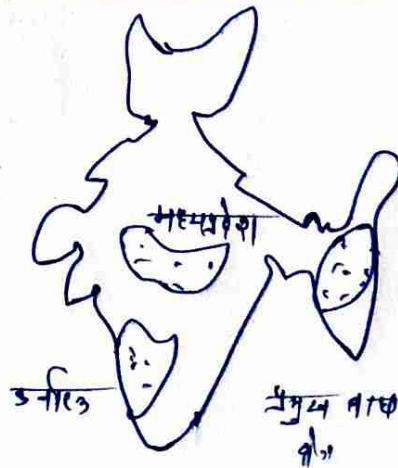 मध्यप्रदेश
कर्नाटक
प्रमुख बाघ
क्षेत्र